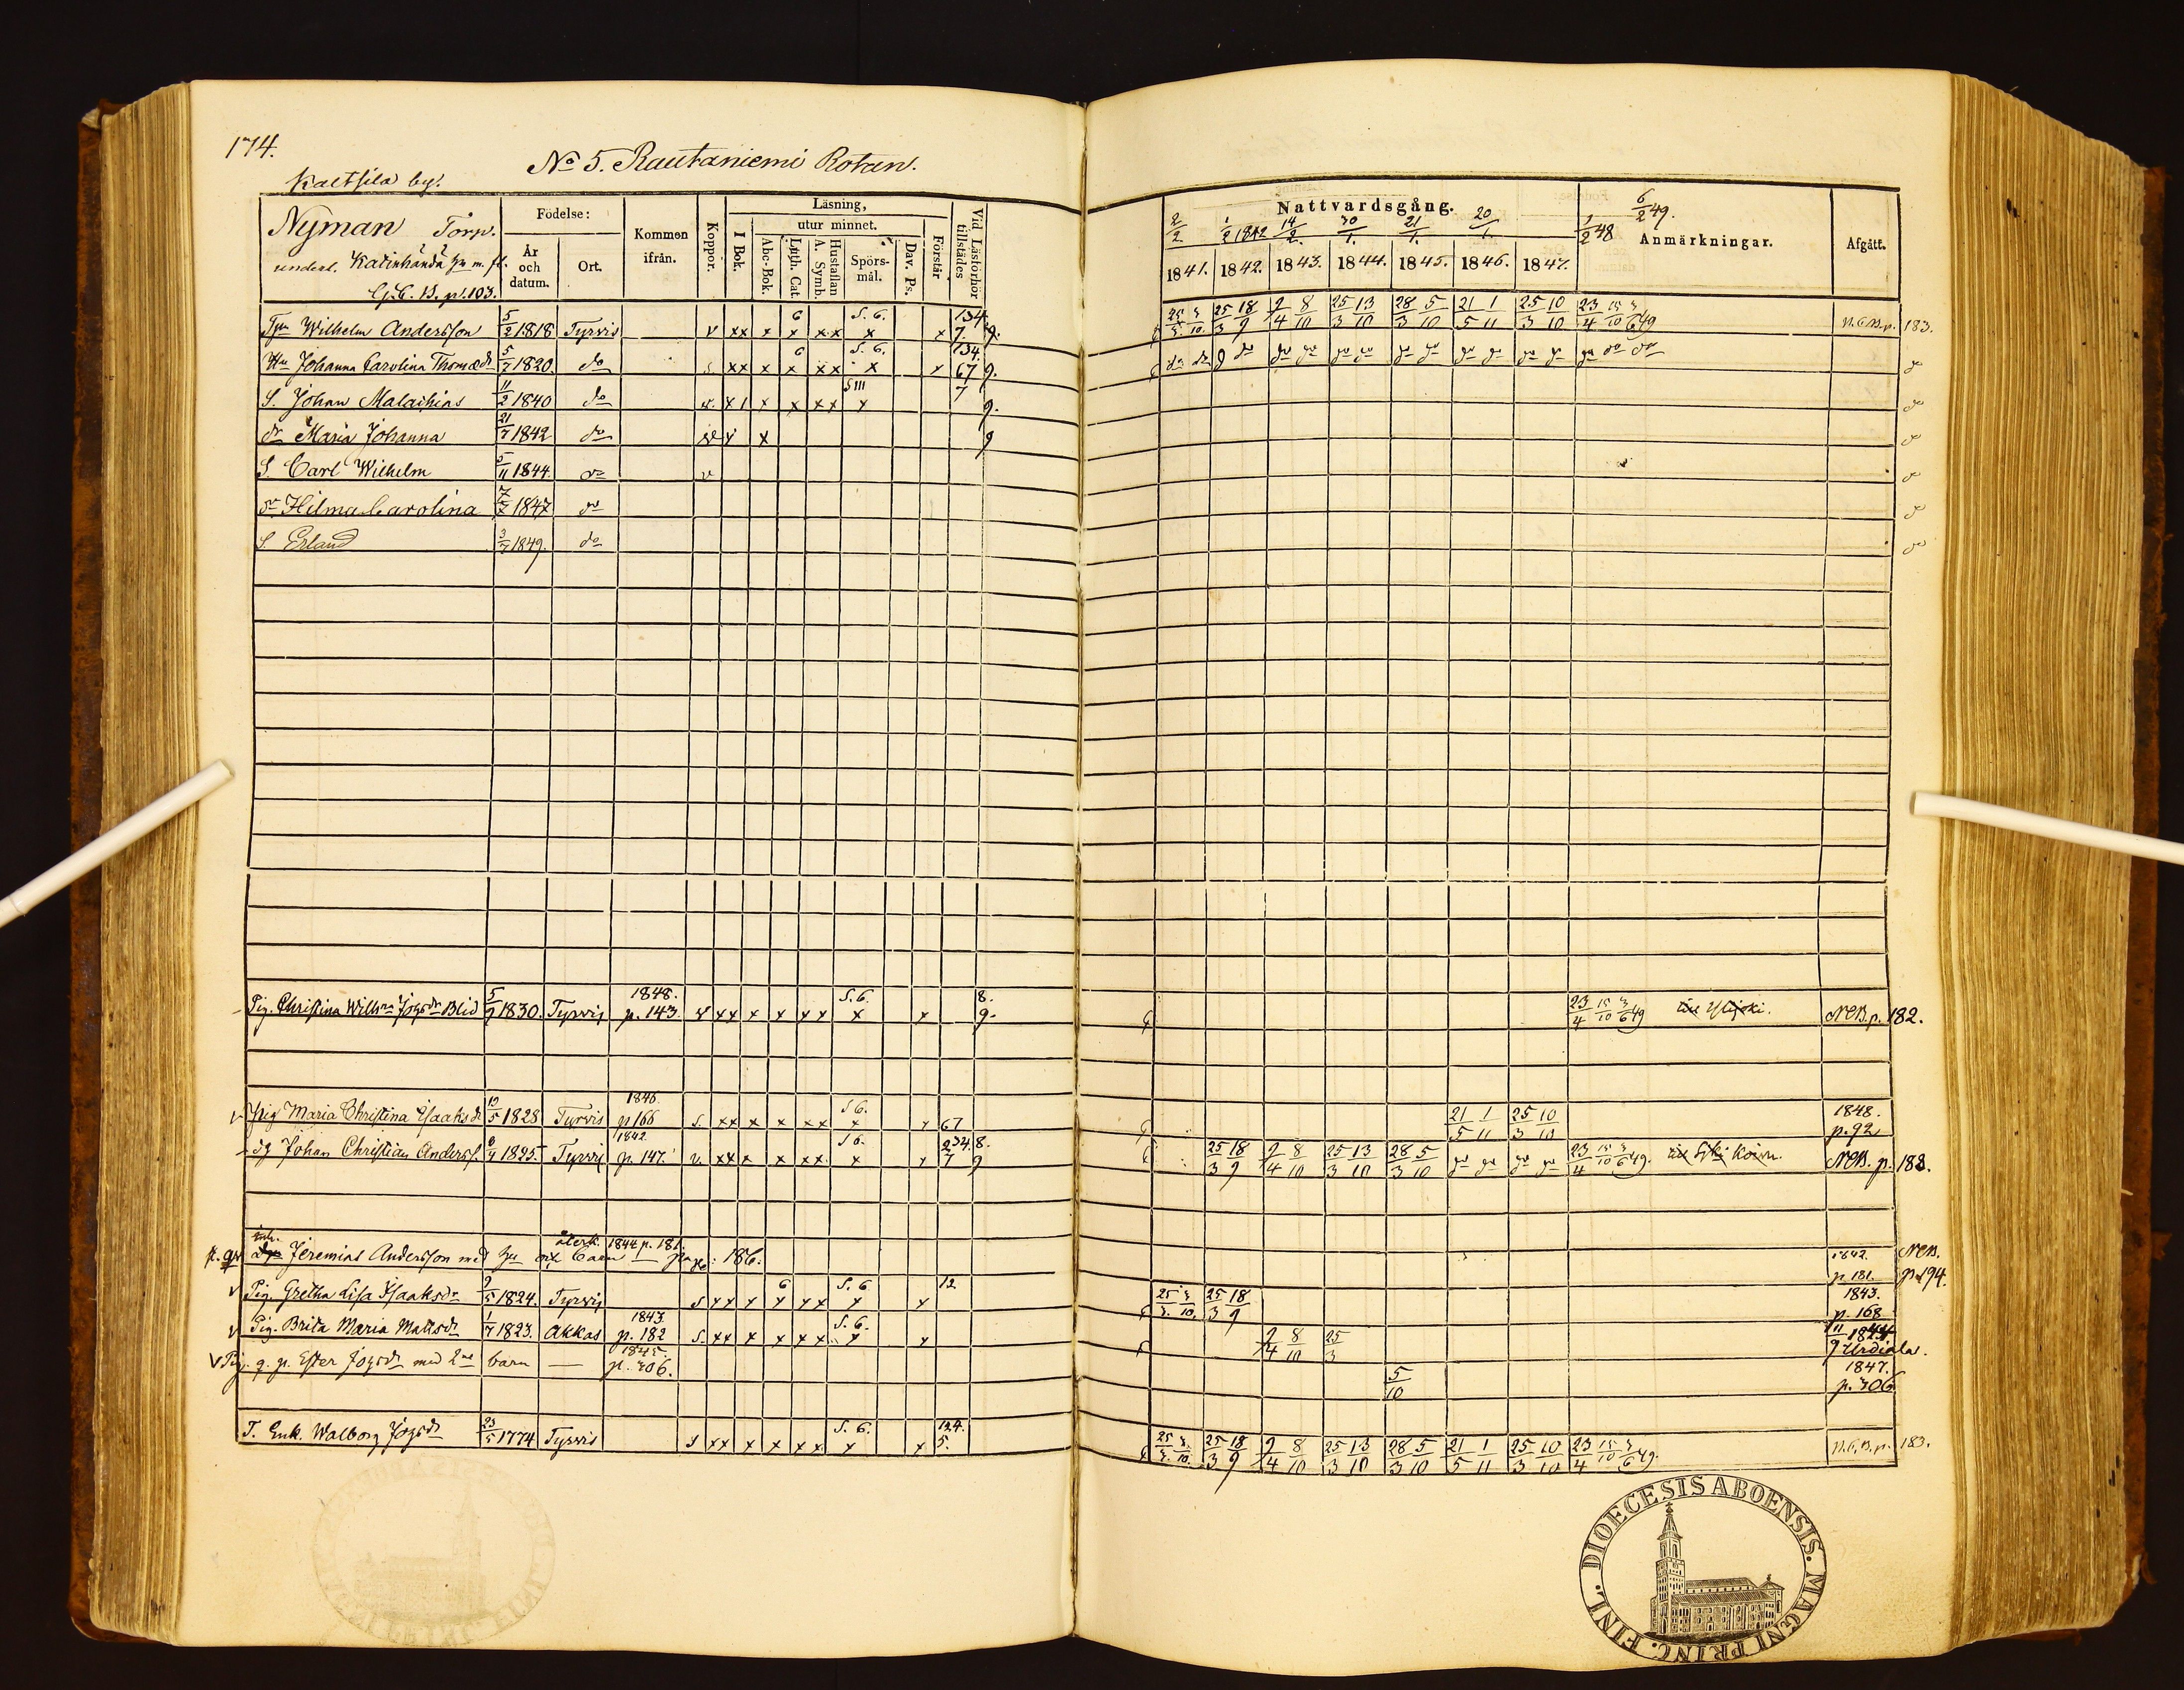 174.
No 5. Rautaniemi Rotan.
Kaltsila by.
Nyman Torp.
underl. m. fl.
G.C.B. p. 103.
Födelse:
År och datum.
Ort.
Kommen ifrån.
Koppor.
Läsning,
I Bok.
utur minnet.
Abc-Bok.
Luth. Cat.
Hustaflan A. Symb.
Spörs-mål.
Dav. Ps.
Förstår
Vid Läsförhör tillstädes
Nattvardsgång.
2/2 1/2 1842 14/2 30/1. 21/1. 20/1. 1/2 48 6/2 49.
1841. 1842. 1843. 1844. 1845. 1846. 1847.
Anmärkningar.
Afgått.
Wilhelm Andersson 5/2 1818 Tyrvis v xx x 6 x xx S. 6. x x 134. 7. 9.
25 18/3 9 2 8/4 10 25 13/3 10 28 5/3 10 21 1/5 11 25 10/3 10 N.C.B. p. 183.
Johanna Carolina 5/7 1820 do s xx x 6 x xx S. 6. x x 134. 67 9. do
S. Johan Malachias 11/2 1840 do v. x 1 x x xx SIII x 7 9. do
dr Maria Johanna 21/7 1842 do x 9 do
S. Carl Wilhelm 5/11 1844. do v do
dr Hilma Carolina 7/7 1847 do do
S Erland 3/7 1849. do do
Pig. Christina Blid 5/9 1830. Tyrvis 1848. p. 143. v xx x x xx S. 6. x x 8. 9.
23/4 15/10 3/6 49 N.C.B. p. 182.
Pig Maria Christina Isaaksdr 19/5 1828 Tyrvis 1846. p 166 S. xx x x xx S 6. x x 67
21 1/5 11 25 10/3 10 1848. p. 92
dg Johan Christian Anderss. 1825. Tyrvis 1842 p. 147. v. xx x x xx S 6. x x 234 8. 7 9
25 18/3 9 2 8/4 10 25 13/3 10 28 5/3 10 do do do do 23/4 15/10 3/6 49. N.C.B. p. 183.
Jeremias Andersson med hu och Barn återk. 1844 p. 181. 186.
1842. p. 181. N.C.B. p. 194.
v Pig. Gretha Lisa Isaaksdr 2/5 1824. Tyrvis s xx x 6 x xx S. 6 x x 12
25 18/3 9 1843. p. 168
v Pig. Brita Maria Mattsdr 1/7 1823. Akkas 1843. p. 182 S. xx x x xx S. 6. x x
2 8/4 10 25/3 Urdiala.
v Pig. q. p. Ester med 2ne barn — 1845. p. 306.
5/10 1847. p. 306
T. Enk. Walborg 23/5 1774 Tyrvis s xx x x xx S. 6. x x 124. 5.
25 18/3 9 2 8/4 10 25 13/3 10 28 5/3 10 21 1/5 11 25 10/3 10 23/4 15/10 3/6 49. N.C.B. p. 183.
DIOECESIS ABOENSIS. MAGNI PRINC. FINL.